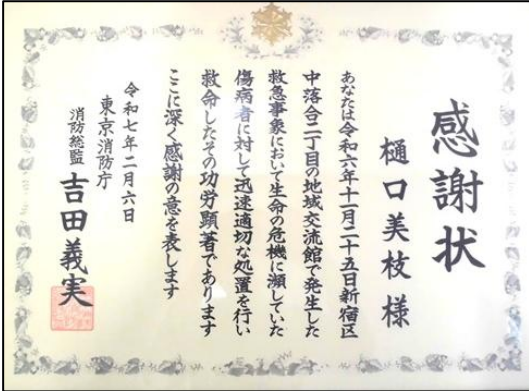 感謝状
樋口美枝様
あなたは令和六年十一月二十五日新宿区
中落合二丁目の地域交流館で発生した
救急事象において生命の危機に瀕していた
傷病者に対して迅速適切な処置を行い
救命したその功労顕著であります
ここに深く感謝の意を表します
令和七年二月六日
東京消防庁
消防総監 吉田義実